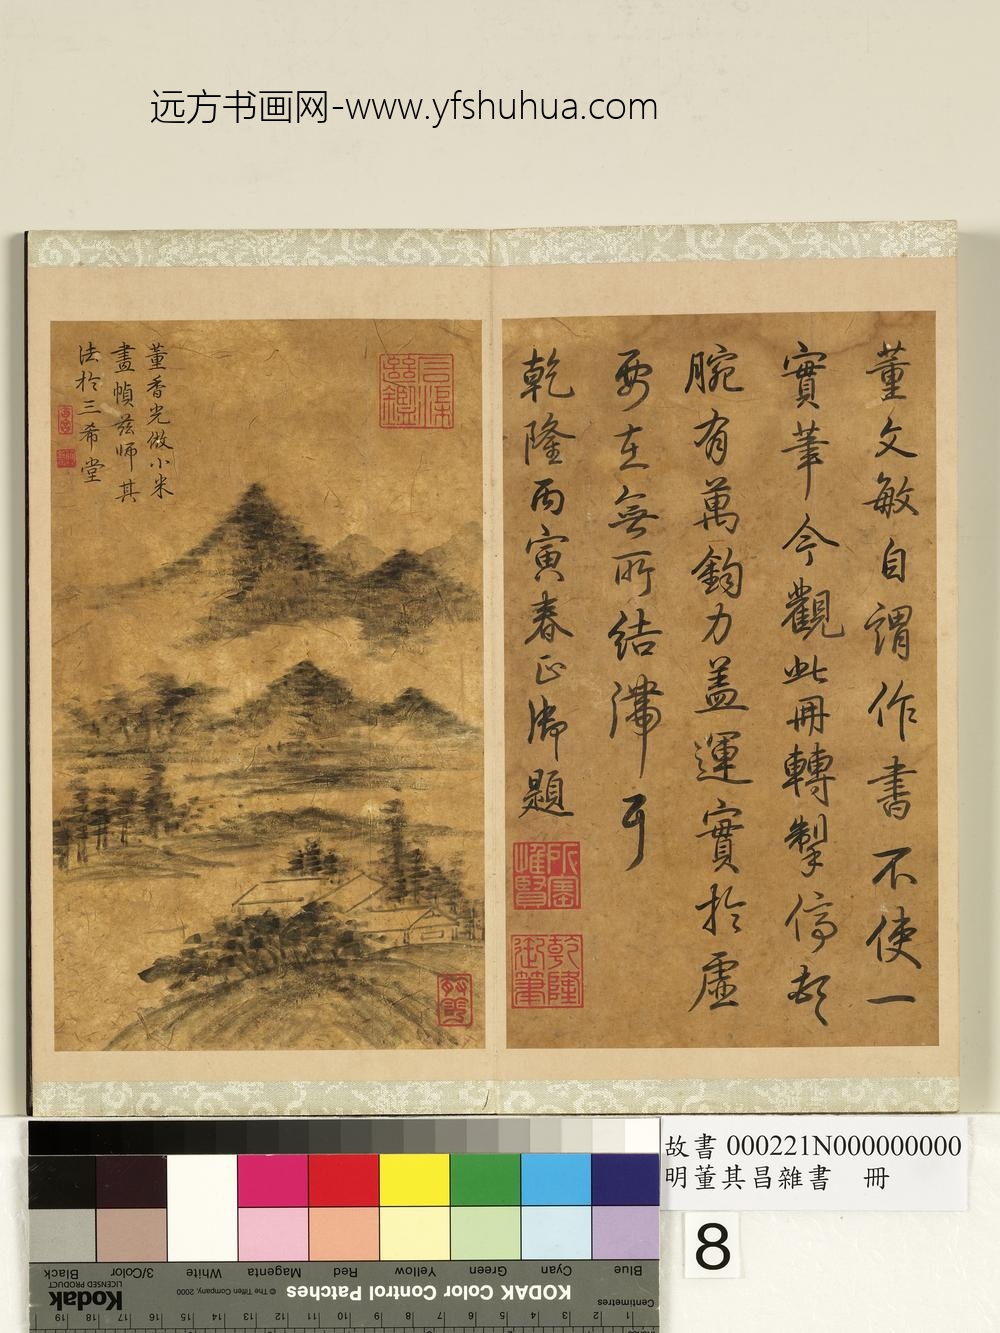 远方书画网-www.yfshuhua.com
董文敏自謂作書不使一
實筆今觀此冊轉掣停頓
腕有萬鈞力蓋運實於虛
要在無所結滯耳
乾隆丙寅春正御題
所寶惟賢
乾隆御筆
董香光倣小米
畫幀茲師其
法於三希堂
故書 000221N000000000
明董其昌雜書 冊
8
Blue
Cyan
Green
Yellow
Red
Magenta
White
3/Color
Black
KODAK Color Control Patches
© The Tiffen Company, 2000
Kodak
LICENSED PRODUCT
Centimetres
1 2 3 4 5 6 7 8 9 10 11 12 13 14 15 16 17 18 19